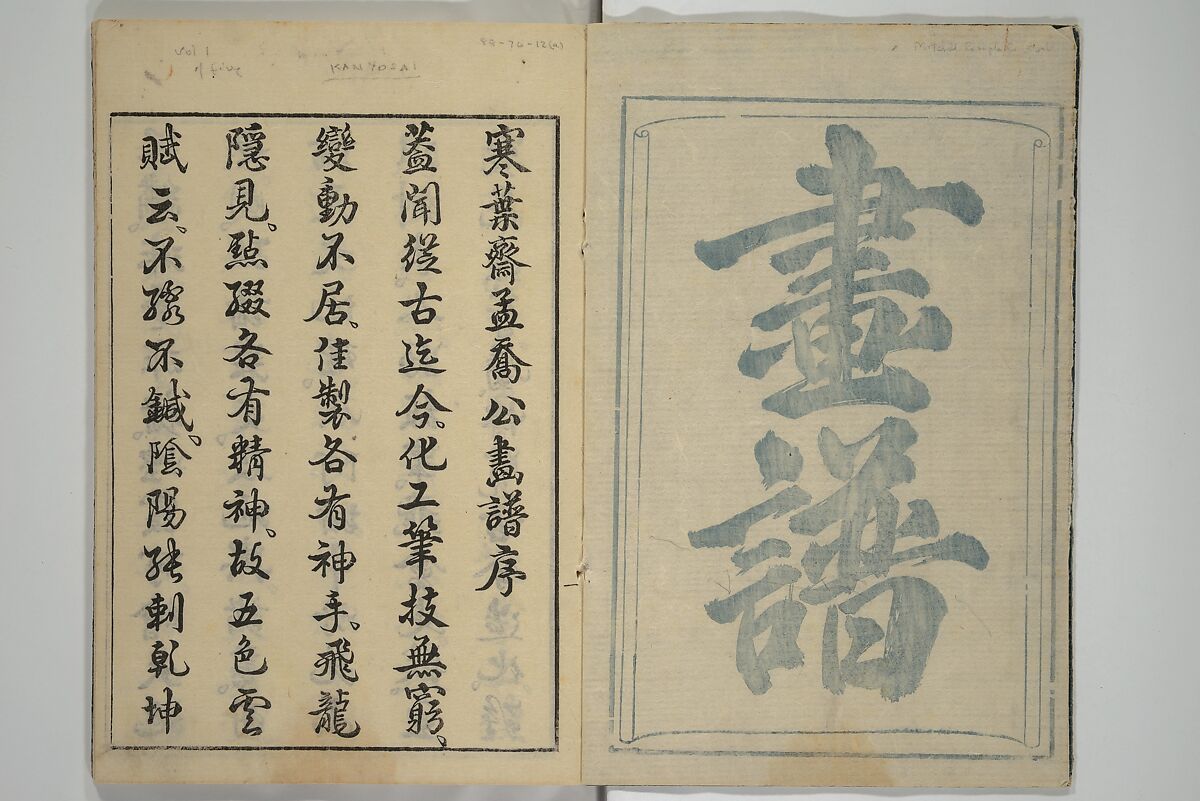 畫譜
寒葉齋孟喬公畫譜序
蓋聞從古迄今。化工筆技無窮。
變動不居。佳製各有神手。飛龍
隱見。點綴各有精神。故五色雲
賦云。不
不鍼。陰陽
刺乾坤
KANYOSAI
vol 1